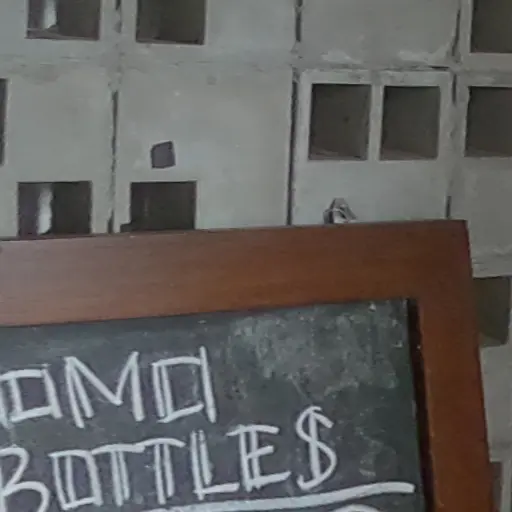 OMO
BOTTLE$